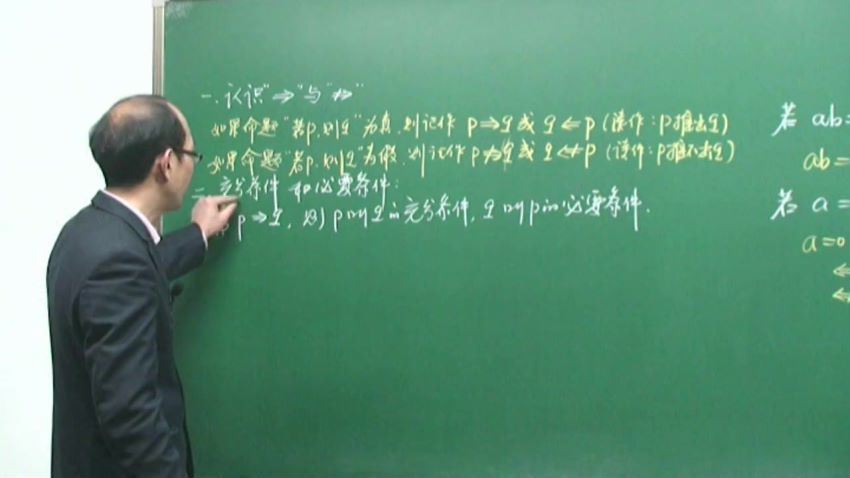 一.认识"⇒"与"⇏"
如果命题"若p,则q"为真,则记作 p⇒q 或 q⇐p (读作:p推出q)
如果命题"若p,则q"为假,则记作 p⇏q 或 q⇍p (读作:p推不出q)
二.充分条件 和必要条件:
p⇒q, 则p叫q的充分条件, q叫p的必要条件.
若 ab=
ab=
若 a=
a=0
⇐
⇐